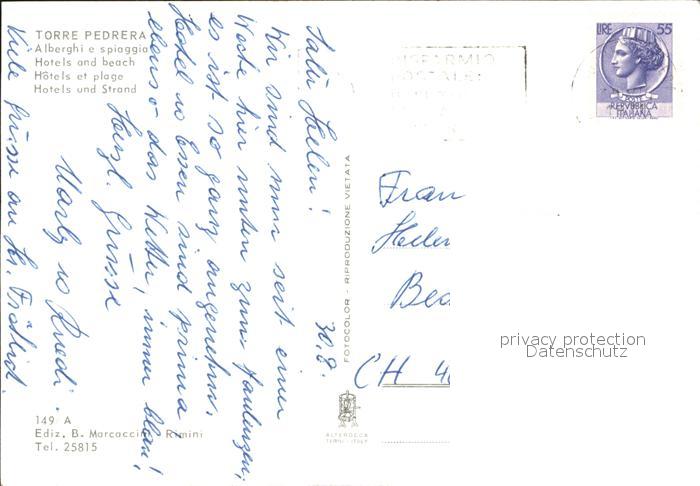 TORRE PEDRERA
Alberghi e spiaggia
Hotels and beach
Hôtels et plage
Hotels und Strand
Salü Helen!
30.8.
Wir sind nun seit einer
Woche hier unten zum faulenzen,
es ist so ganz angenehm.
Hotel u Essen sind prima,
ebenso das Wetter, immer blau!
Herzl. Grüsse
Marly u Ruedi.
Viele Grüsse an Hr.
149 A
Ediz. B. Marcaccini Rimini
Tel. 25815
FOTOCOLOR - RIPRODUZIONE VIETATA
ALTEROCCA
TERNI - ITALY
RISPARMIO
POSTALE:
LIRE 55
REPVBBLICA
ITALIANA
Frau
Helen
CH
privacy protection
Datenschutz